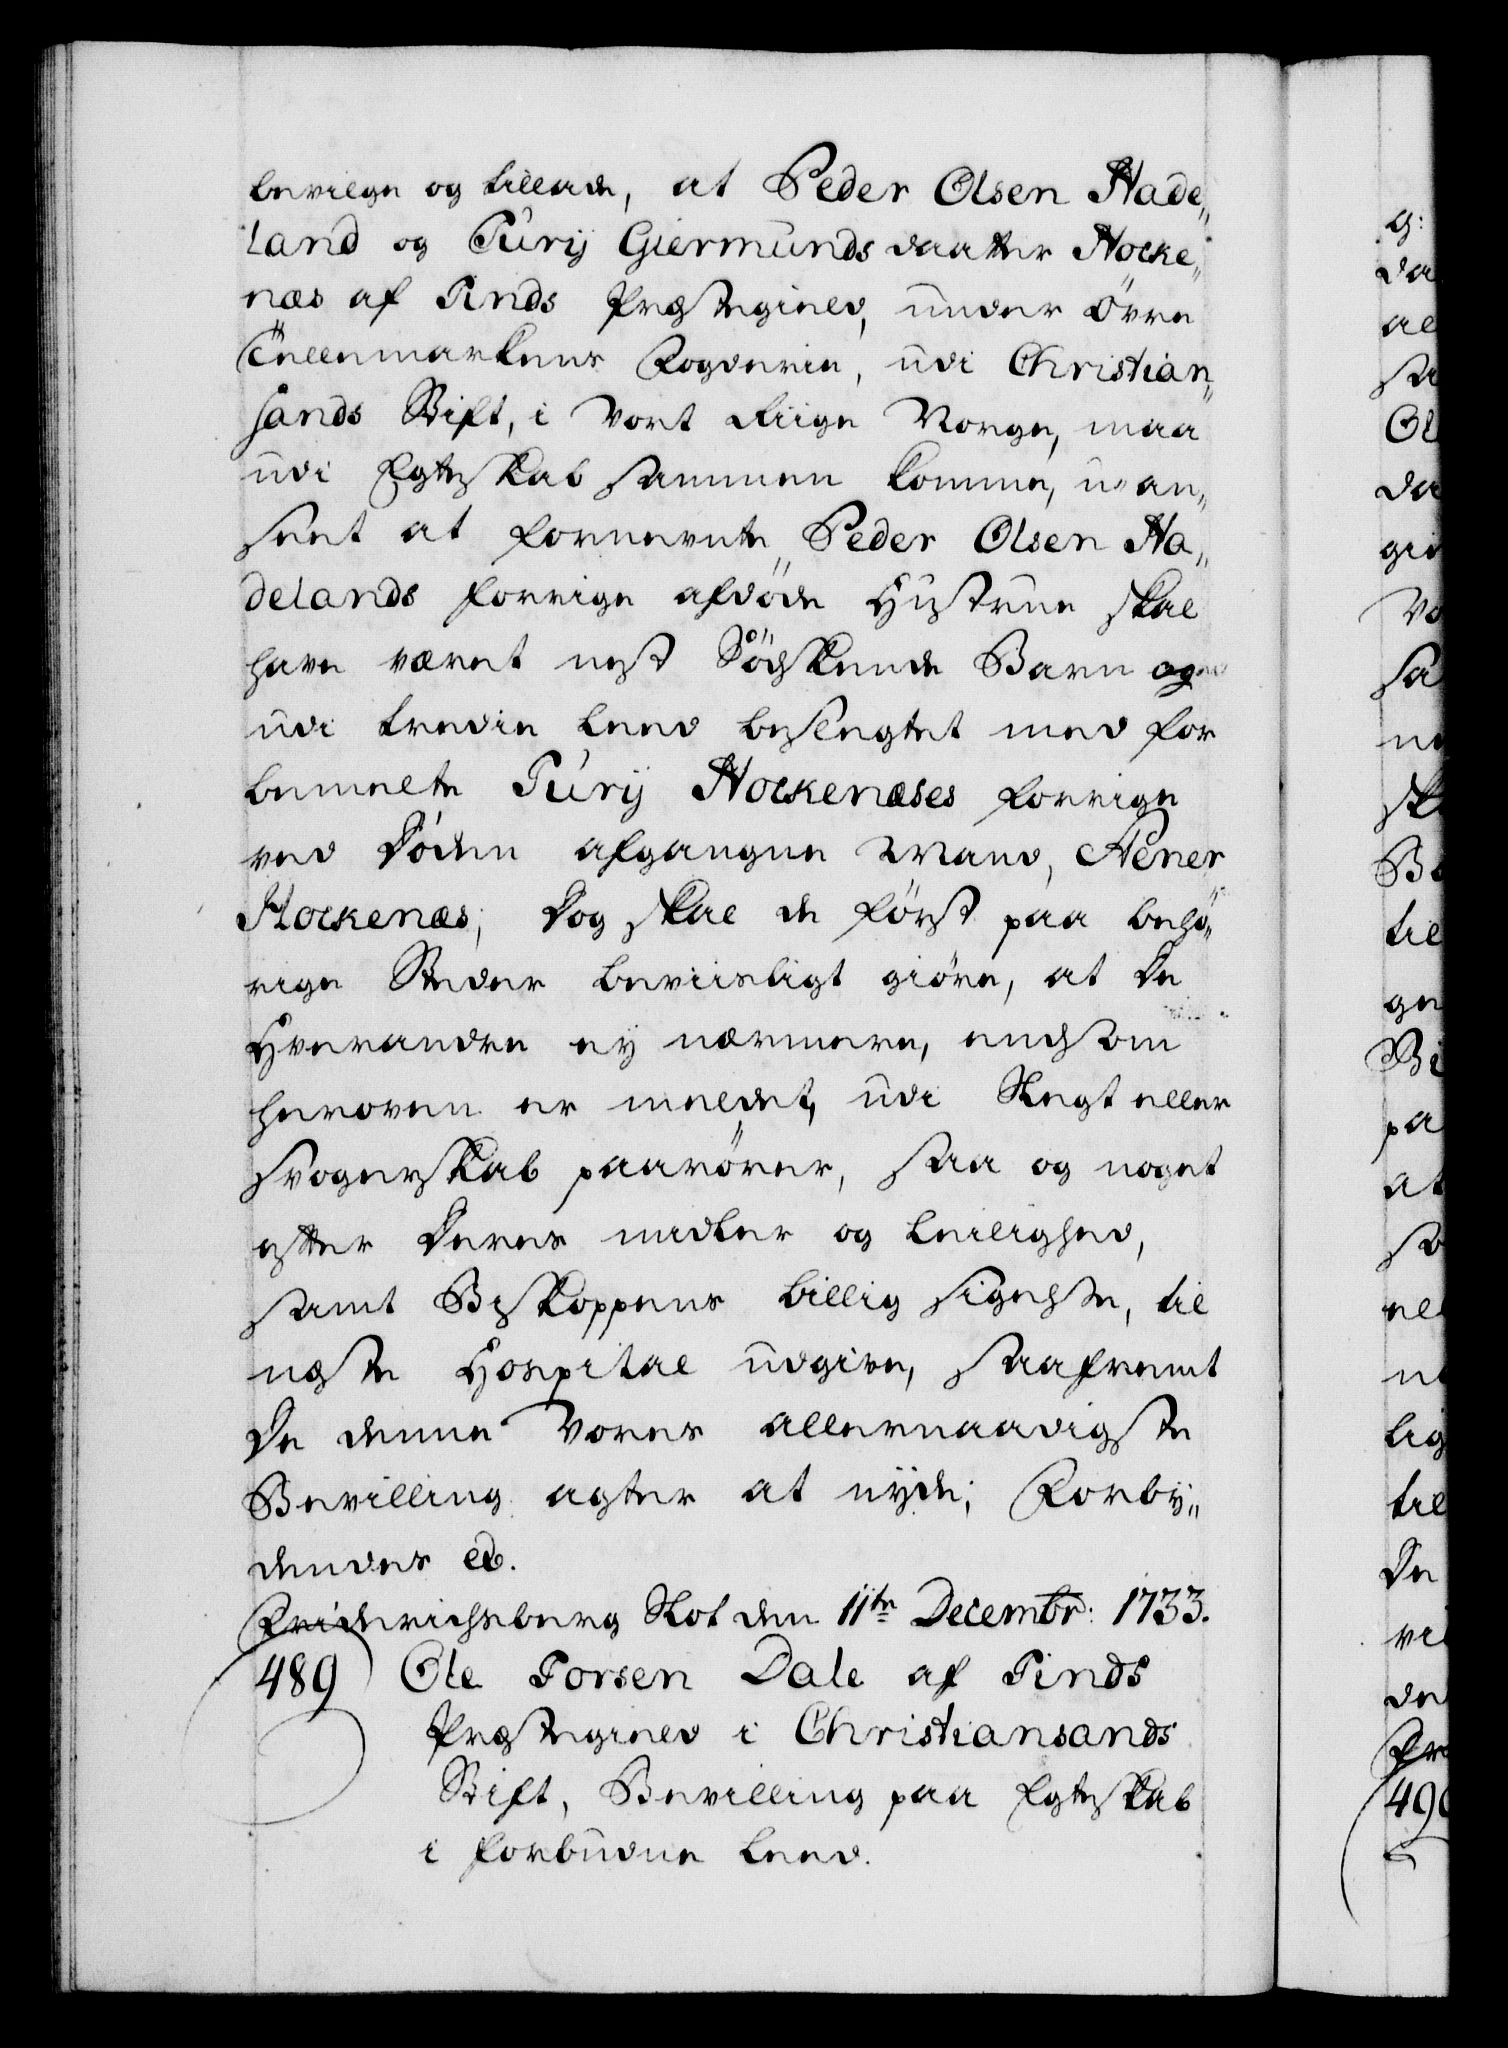 bevilge og tillade, at Peder Olsen Hade„
land og Turij Giermunds daatter Hocke„
næs af Tinds Præstegield, under Övre
Tellemarkens Fogderie, udi Christian„
sands Stift, i Vort Riige Norge, maa
udi Egteskab sammen komme, u-an„
seet at fornevnte Peder Olsen Ha„
delands forrige afdöde Hustrue skal
have været nest Södskende Barn og
udi tredie Leed beslegtet med for
bemelte Turij Hockenæses forrige
ved Döden afgangne Mand,
Hockenæs; Dog skal de först paa behö„
rige Steder beviisligt giöre, at De
Hverandre ey nærmere, end som
heroven er meldet, udi Slegt eller
Svogerskab paarörer, saa og noget
efter Deres midler og Leilighed,
samt Biskoppens billig sigelse, til
neste Hospital udgive, saafremt
De denne Vores allernaadigste
Bevilling agter at nyde; Forby„
dendes etc.
Friderichsberg Slot den 11te Decembr: 1733.
489 Ole Torsen Dale af Tinds
Præstegield i Christiansands
Stift, Bevilling paa Egteskab
i forbudne Leed.